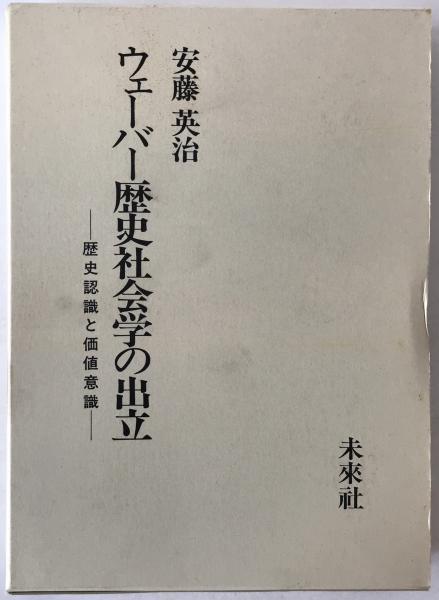 安藤 英治
ウェーバー歴史社会学の出立
――歴史認識と価値意識――
未來社